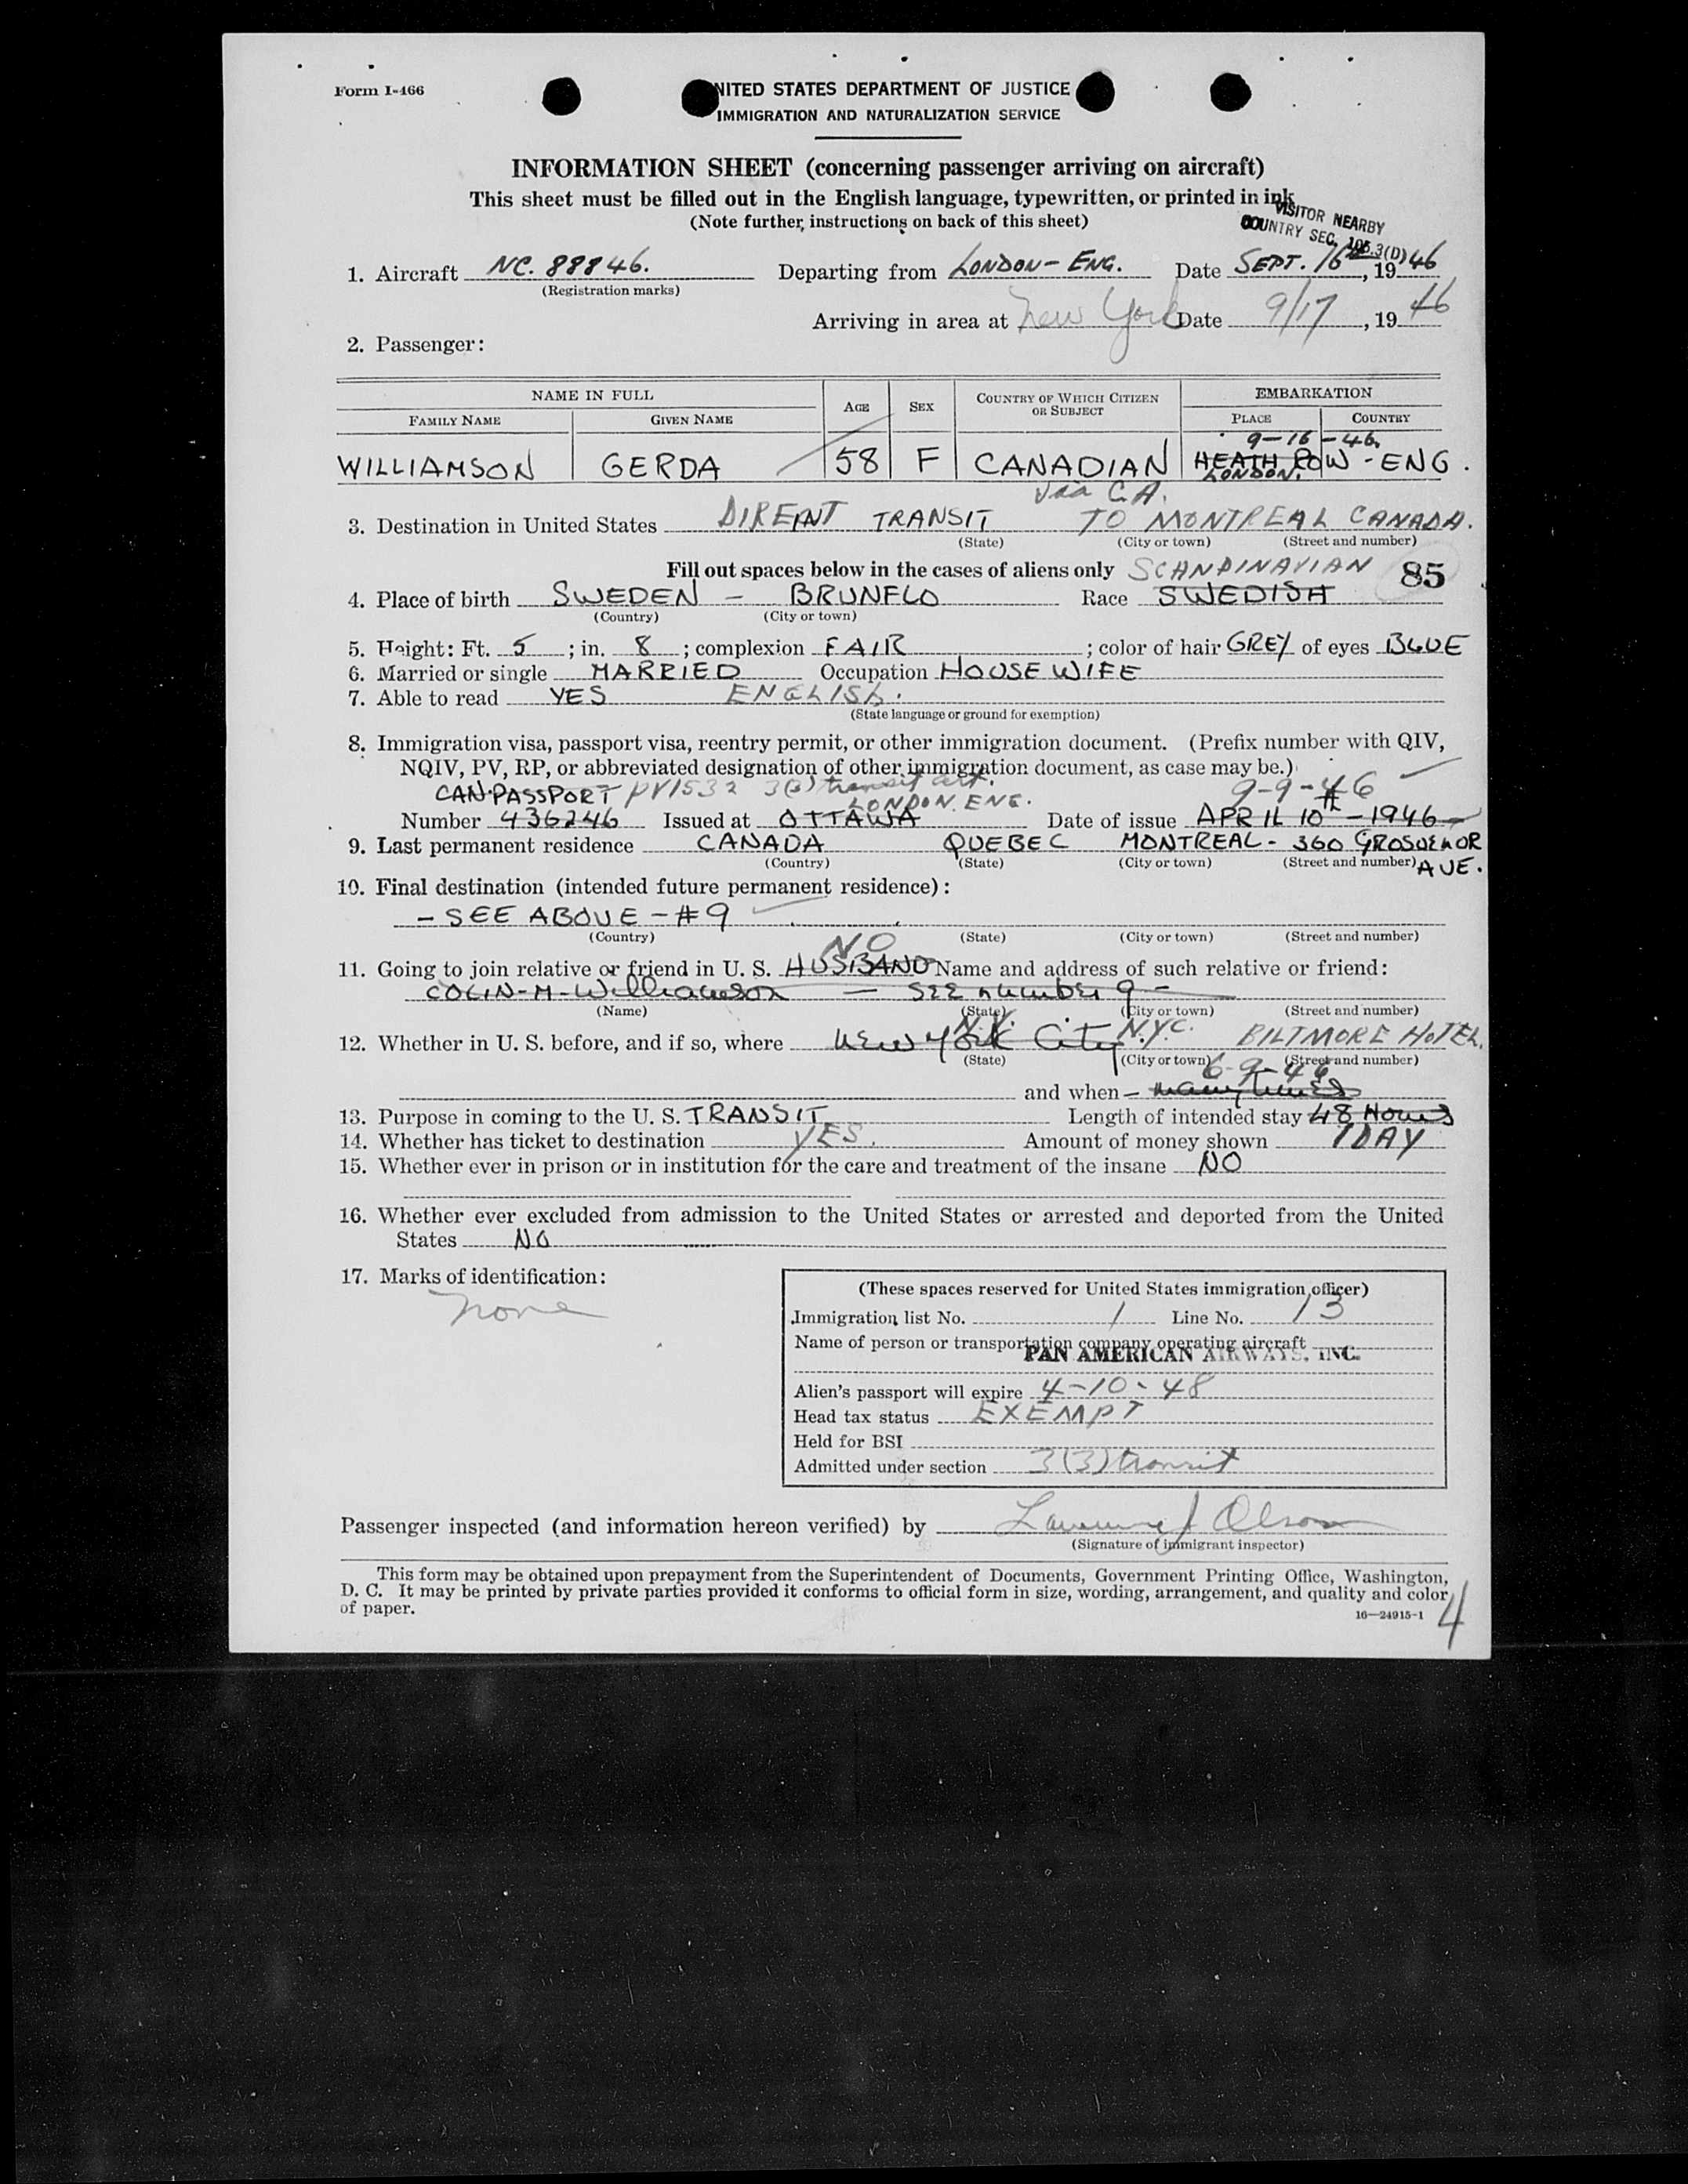 Form I-466
UNITED STATES DEPARTMENT OF JUSTICE
IMMIGRATION AND NATURALIZATION SERVICE
INFORMATION SHEET (concerning passenger arriving on aircraft)
This sheet must be filled out in the English language, typewritten, or printed in ink
(Note further instructions on back of this sheet)
VISITOR NEARBY
COUNTRY SEC. 105.3(D)
1. Aircraft NC. 88846. Departing from LONDON - ENG. Date SEPT. 16th, 1946
(Registration marks)
Arriving in area at New York Date 9/17, 1946
2. Passenger:
NAME IN FULL AGE SEX COUNTRY OF WHICH CITIZEN OR SUBJECT EMBARKATION
FAMILY NAME GIVEN NAME PLACE COUNTRY
9-16-46.
WILLIAMSON GERDA 58 F CANADIAN HEATH ROW - ENG.
LONDON.
via C.A.
3. Destination in United States TRANSIT TO MONTREAL CANADA.
(State) (City or town) (Street and number)
Fill out spaces below in the cases of aliens only SCANDINAVIAN 85
4. Place of birth SWEDEN - BRUNFLO Race SWEDISH
(Country) (City or town)
5. Height: Ft. 5; in. 8; complexion FAIR; color of hair GREY of eyes BLUE
6. Married or single MARRIED Occupation HOUSEWIFE
7. Able to read YES ENGLISH.
(State language or ground for exemption)
8. Immigration visa, passport visa, reentry permit, or other immigration document. (Prefix number with QIV,
NQIV, PV, RP, or abbreviated designation of other immigration document, as case may be.)
CAN. PASSPORT PV1532 3(3) transit cert. 9-9-46
LONDON. ENG.
Number 436246 Issued at OTTAWA Date of issue APRIL 10th - 1946
9. Last permanent residence CANADA QUEBEC MONTREAL - 360 GROSVENOR AVE.
(Country) (State) (City or town) (Street and number)
10. Final destination (intended future permanent residence):
- SEE ABOVE - #9
(Country) (State) (City or town) (Street and number)
NO
11. Going to join relative or friend in U. S. HUSBAND Name and address of such relative or friend:
COLIN - M - Williamson - SEE number 9 -
(Name) (State) (City or town) (Street and number)
N.Y. N.Y.C. BILTMORE HOTEL.
12. Whether in U. S. before, and if so, where New York City
(State) (City or town) (Street and number)
6-9-46
and when - many times
13. Purpose in coming to the U. S. TRANSIT Length of intended stay 48 Hours
1 DAY
14. Whether has ticket to destination YES. Amount of money shown
15. Whether ever in prison or in institution for the care and treatment of the insane NO
16. Whether ever excluded from admission to the United States or arrested and deported from the United
States NO
17. Marks of identification:
none
(These spaces reserved for United States immigration officer)
Immigration list No. 1 Line No. 13
Name of person or transportation company operating aircraft
PAN AMERICAN AIRWAYS, INC.
Alien's passport will expire 4-10-48
Head tax status EXEMPT
Held for BSI
Admitted under section 3(3) transit
Passenger inspected (and information hereon verified) by Lawrence J Olson
(Signature of immigrant inspector)
This form may be obtained upon prepayment from the Superintendent of Documents, Government Printing Office, Washington,
D. C. It may be printed by private parties provided it conforms to official form in size, wording, arrangement, and quality and color
of paper.
16—24915-1
4